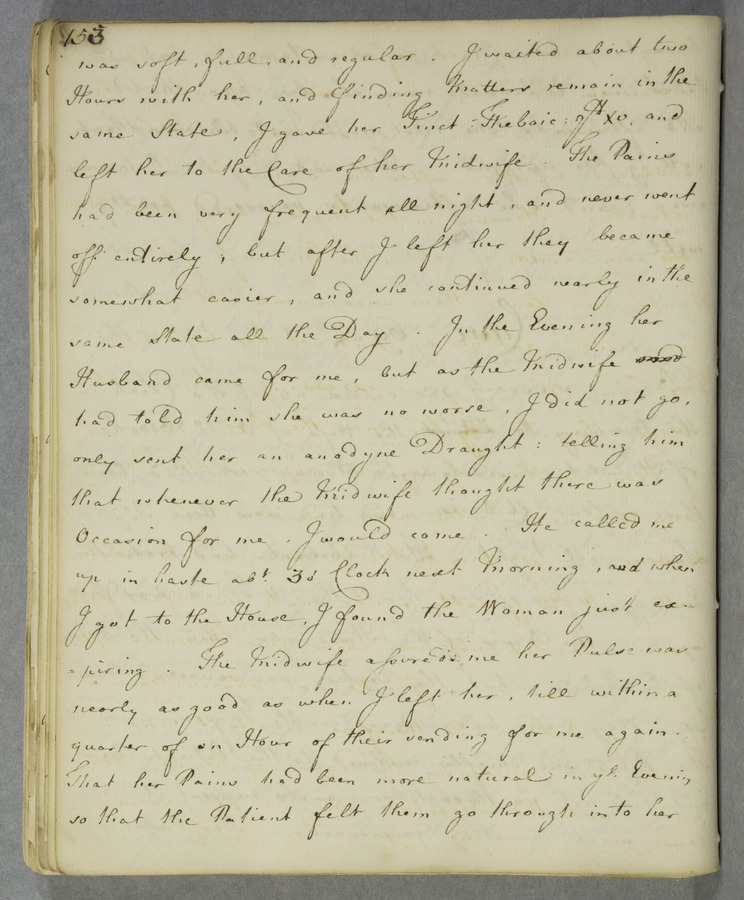 153
was soft, full, and regular. I waited about two
Hours with her, and finding Matters remain in the
same State, I gave her Tinct: Thebaic: gtt XV. and
left her to the Care of her Midwife. The Pains
had been very frequent all night, and never went
off entirely; but after I left her they became
somewhat easier, and she continued nearly in the
same State all the Day. In the Evening her
Husband came for me, but as the Midwife
had told him she was no worse, I did not go,
only sent her an anodyne Draught: telling him
that whenever the Midwife thought there was
Occasion for me, I would come. He called me
up in haste abt. 3 Clock next Morning, and when
I got to the House, I found the Woman just ex-
=piring. The Midwife assured me her Pulse was
nearly as good as when I left her, till within a
quarter of an Hour of their sending for me again.
That her Pains had been more natural in ye. Evenin
so that the Patient felt them go through into her